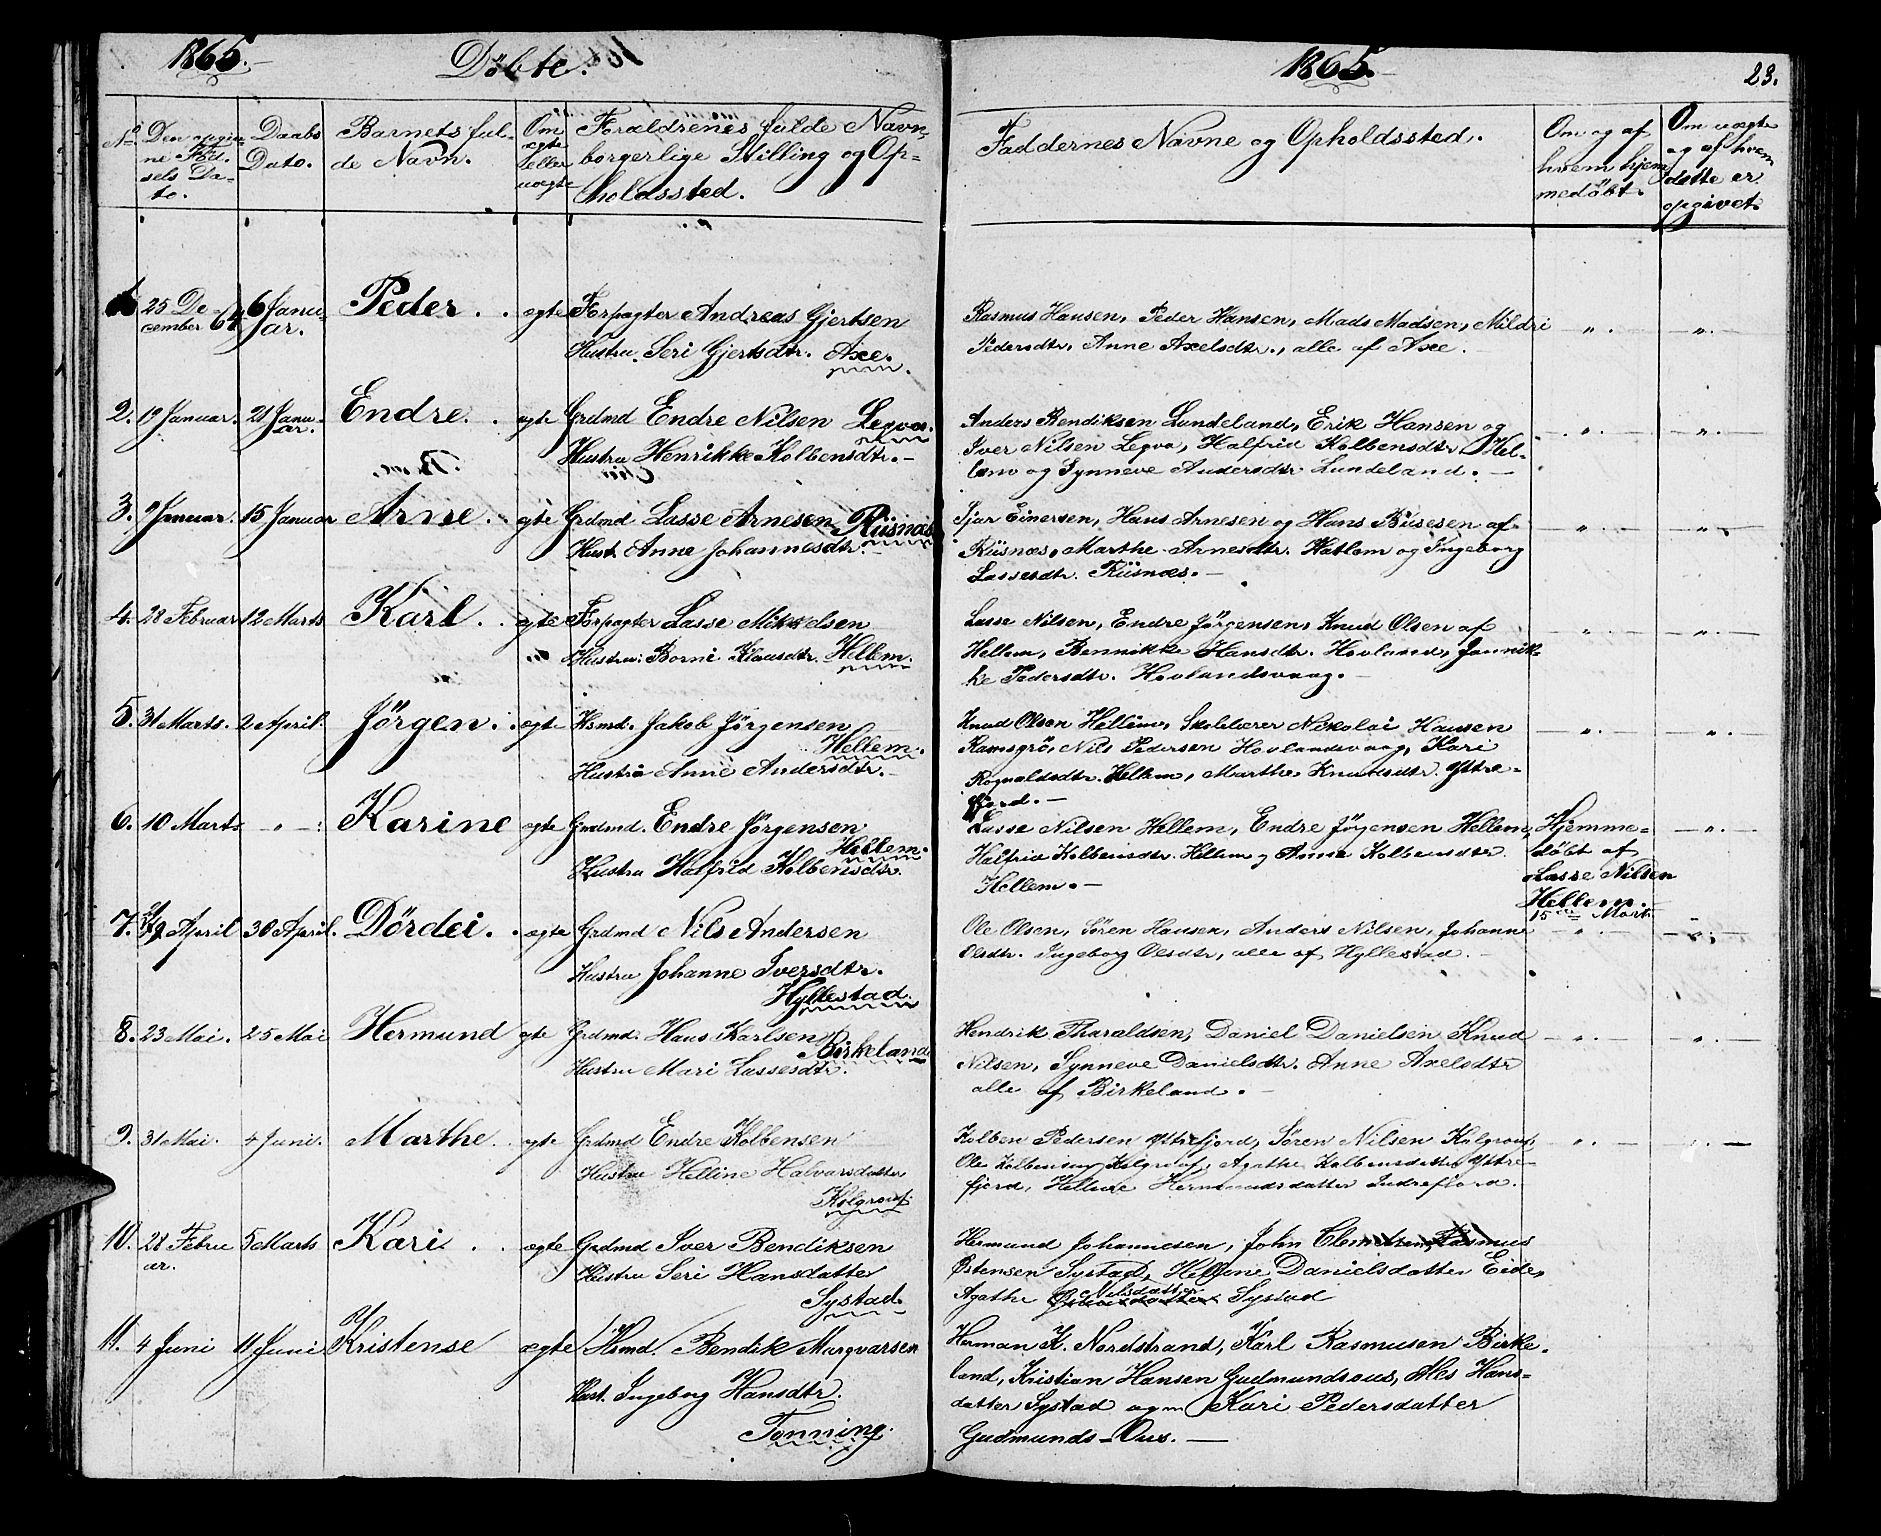 1865.
Döbte.
1865.
23.
No
Den opgivne Födselsdato.
Daabs Dato.
Barnets fulde Navn.
Om ægte eller uægte
Forældrenes fulde Navn, borgerlige Stilling og Opholdssted.
Faddernes Navne og Opholdssted.
Om og af hvem hjemmedöbt.
Om uægte og af hvem dette er opgivet.
1. 25 December 64 6 Januar. Peder. ægte Forpagter Andreas Gjertsen
Hustru. Seri Gjertsdtr. Axe.
Rasmus Hansen, Peder Hansen, Mads Madsen, Mildri
Pedersdtr, Anne Axelsdtr., alle af Axe.
2. 19 Januar. 21 Januar. Endre. ægte Grdmd Endre Nilsen Legva.
Hustru Henrikke Kolbensdtr.
Anders Bendiksen Lundeland, Erik Hansen og
Iver Nilsen Legva, Halfrid Kolbensdtr Hel-
lem og Synneve Andersdtr Lundeland.
3. 9 Januar. 15 Januar Arne. ægte Grdmd Lasse Arnesen Riisnæs
Hust. Anne Johannesdtr.
Einersen, Hans Arnesen og Hans af
Riisnæs, Marthe Arnesdtr. Hatlem og Ingeborg
Lassesdtr. Riisnæs.
4. 28 Februar 12 Marts Karl. ægte Forpagter Lasse Mikkelsen
Hustru: Borni Klausdtr. Hellem.
Lasse Nilsen, Endre Jörgensen, Knud Olsen af
Hellem, Bennikke Hansdtr. Hovland, Jannik-
ke Pedersdtr. Hovlandsvaag.
5. 31 Marts. 2 April. Jörgen. ægte Hsmd. Jakob Jörgensen
Hellem.
Hustru Anne Andersdtr.
Knud Olsen Hellem, Skolelærer Nikolai Hansen
Ramsgrö, Nils Pedersen Hovlandsvaag, Kari
Rognaldsdtr. Hellem, Marthe Knudsdtr. Yttre-
fjord.
6. 10 Marts Karine ægte Grdmd. Endre Jörgensen
Hellem.
Hustru Halfrid Kolbensdtr.
Lasse Nilsen Hellem, Endre Jörgensen Hellem,
Halfrid Kolbensdtr. Hellem og Anna Kolbensdtr.
Hellem.
Hjemme-
döbt af
Lasse Nilsen
Hellem.
15 Mart
7. April 30 April. Dördei. ægte Grdmd Nils Andersen
Hustru Johanne Iversdtr.
Hyllestad.
Ole Olsen, Sören Hansen, Anders Nilsen, Johanne
Olsdtr. Ingeborg Olsdtr, alle af Hyllestad.
8. 23 Mai. 25 Mai Hermund ægte Grdmd. Hans Karlsen
Birkeland
Hustru Mari Lassesdtr.
Hendrik Tharaldsen, Daniel Danielsen Knud
Nilsen, Synneve Danielsdtr. Anne Axelsdtr
alle af Birkeland.
9. 31 Mai. 4 Juni. Marthe. ægte Grdmd Endre Kolbensen
Hustru Helline Halvarsdatter
Kolgrov.
Kolben Pedersen Yttrefjord, Sören Nilsen Kolgrov,
Ole Kolbensen Kolgrov, Agathe Kolbensdatter Yttre-
fjord, Helline Hermundsdatter Indrefjord.
10. 28 Februar. 5 Marts Kari. ægte Grdmd Iver Bendiksen
Hustru Seri Hansdatter
Systad.
Hermund Johannesen, John Clemetsen, Rasmus
Östensen Systad, Helline Danielsdatter Eide,
Nilsdatter
Agathe Systad
11. 4 Juni 11 Juni Kristense ægte Hsmd. Bendik Morgvarsen
Hust. Ingeborg Hansdtr.
Tonning.
Herman K. Nordstrand, Karl Rasmusen Birke-
land, Kristian Hansen Gudmundsous, Hans-
datter Systad Kari Pedersdatter
Gudmunds-Ous.